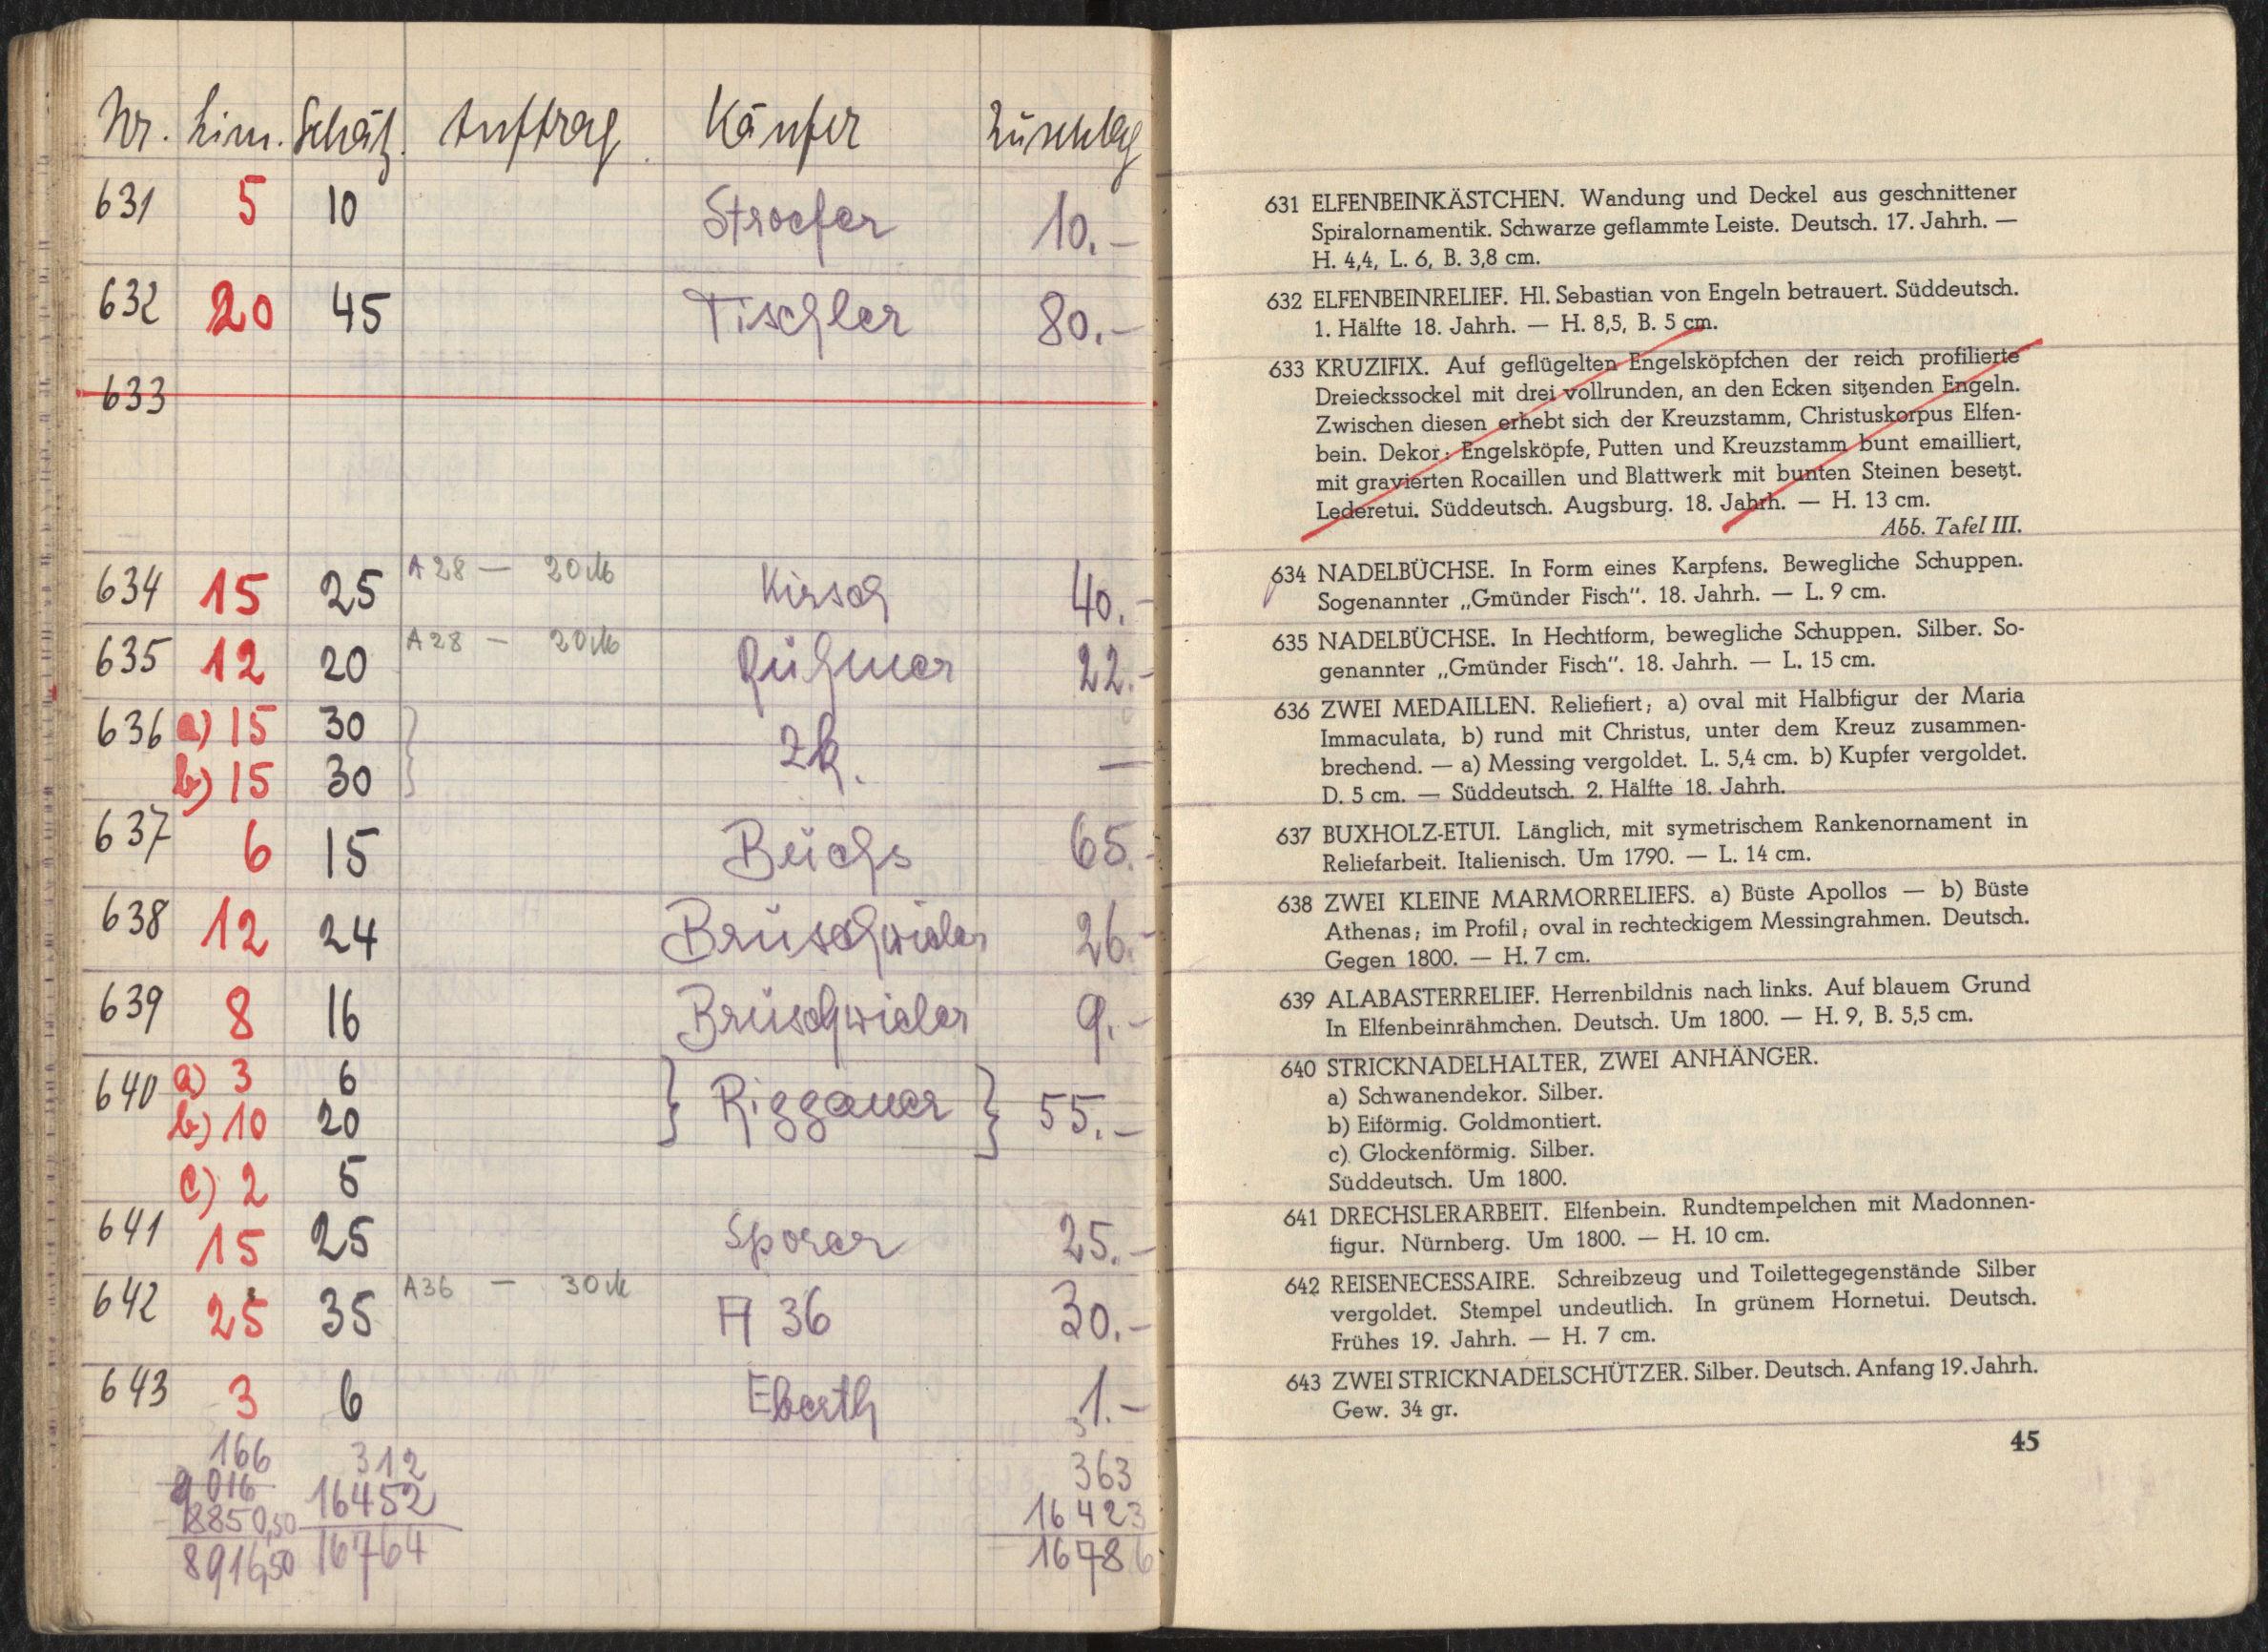 Nr. Lim. Schätz. Auftrag. Käufer Zuschlag
631 5 10 Stroefer 10.-
632 20 45 Tischler 80.-
633
634 15 25 A 28 — 20 M Kirsch 40.-
635 12 20 A 28 — 20 M Rühmer 22.-
636 a) 15 30
b) 15 30 zk. —
637 6 15 Buchs 65.-
638 12 24 Brüschwieler 26.-
639 8 16 Brüschwieler 9.-
640 a) 3 6
b) 10 20 Riggauer 55.-
c) 2 5
641 15 25 Sporer 25.-
642 25 35 A36 — 30 M A 36 30.-
643 3 6 Eberth 1.-
166 312 363
9016 16452 16423
8850,50
8916,50 16764 16786
631 ELFENBEINKÄSTCHEN. Wandung und Deckel aus geschnittener
Spiralornamentik. Schwarze geflammte Leiste. Deutsch. 17. Jahrh. —
H. 4,4, L. 6, B. 3,8 cm.
632 ELFENBEINRELIEF. Hl. Sebastian von Engeln betrauert. Süddeutsch.
1. Hälfte 18. Jahrh. — H. 8,5, B. 5 cm.
633 KRUZIFIX. Auf geflügelten Engelsköpfchen der reich profilierte
Dreieckssockel mit drei vollrunden, an den Ecken sitzenden Engeln.
Zwischen diesen erhebt sich der Kreuzstamm, Christuskorpus Elfen-
bein. Dekor: Engelsköpfe, Putten und Kreuzstamm bunt emailliert,
mit gravierten Rocaillen und Blattwerk mit bunten Steinen besetzt.
Lederetui. Süddeutsch. Augsburg. 18. Jahrh. — H. 13 cm.
Abb. Tafel III.
634 NADELBÜCHSE. In Form eines Karpfens. Bewegliche Schuppen.
Sogenannter „Gmünder Fisch“. 18. Jahrh. — L. 9 cm.
635 NADELBÜCHSE. In Hechtform, bewegliche Schuppen. Silber. So-
genannter „Gmünder Fisch“. 18. Jahrh. — L. 15 cm.
636 ZWEI MEDAILLEN. Reliefiert; a) oval mit Halbfigur der Maria
Immaculata, b) rund mit Christus, unter dem Kreuz zusammen-
brechend. — a) Messing vergoldet. L. 5,4 cm. b) Kupfer vergoldet.
D. 5 cm. — Süddeutsch. 2. Hälfte 18. Jahrh.
637 BUXHOLZ-ETUI. Länglich, mit symetrischem Rankenornament in
Reliefarbeit. Italienisch. Um 1790. — L. 14 cm.
638 ZWEI KLEINE MARMORRELIEFS. a) Büste Apollos — b) Büste
Athenas; im Profil; oval in rechteckigem Messingrahmen. Deutsch.
Gegen 1800. — H. 7 cm.
639 ALABASTERRELIEF. Herrenbildnis nach links. Auf blauem Grund
In Elfenbeinrähmchen. Deutsch. Um 1800. — H. 9, B. 5,5 cm.
640 STRICKNADELHALTER, ZWEI ANHÄNGER.
a) Schwanendekor. Silber.
b) Eiförmig. Goldmontiert.
c) Glockenförmig. Silber.
Süddeutsch. Um 1800.
641 DRECHSLERARBEIT. Elfenbein. Rundtempelchen mit Madonnen-
figur. Nürnberg. Um 1800. — H. 10 cm.
642 REISENECESSAIRE. Schreibzeug und Toilettegegenstände Silber
vergoldet. Stempel undeutlich. In grünem Hornetui. Deutsch.
Frühes 19. Jahrh. — H. 7 cm.
643 ZWEI STRICKNADELSCHÜTZER. Silber. Deutsch. Anfang 19. Jahrh.
Gew. 34 gr.
45